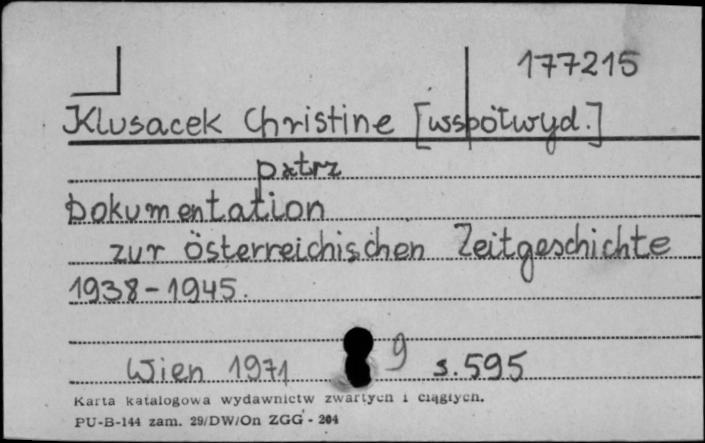 177215
Klusacek Christine [współwyd.]
patrz
Dokumentation
zur österreichischen Zeitgeschichte
1938-1945.
Wien 1971 9 s. 595
Karta katalogowa wydawnictw zwartych i ciągłych.
PU-B-144 zam. 29/DW/On ZGG - 204